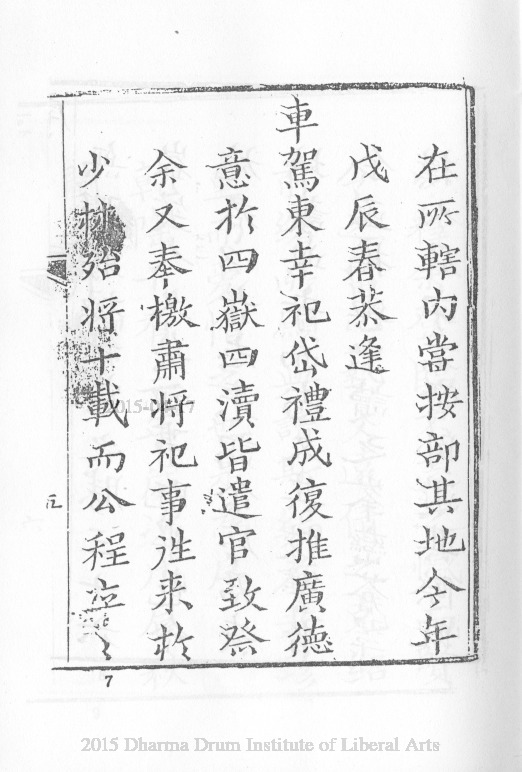 在所轄内當按部其地今年
戊辰春恭逢
車駕東幸祀岱禮成復推廣德
意於四嶽四瀆皆遣官致祭
余又奉檄肅將祀事徃来於
少林殆将十載而公程卒〻
五
7
2015 Dharma Drum Institute of Liberal Arts